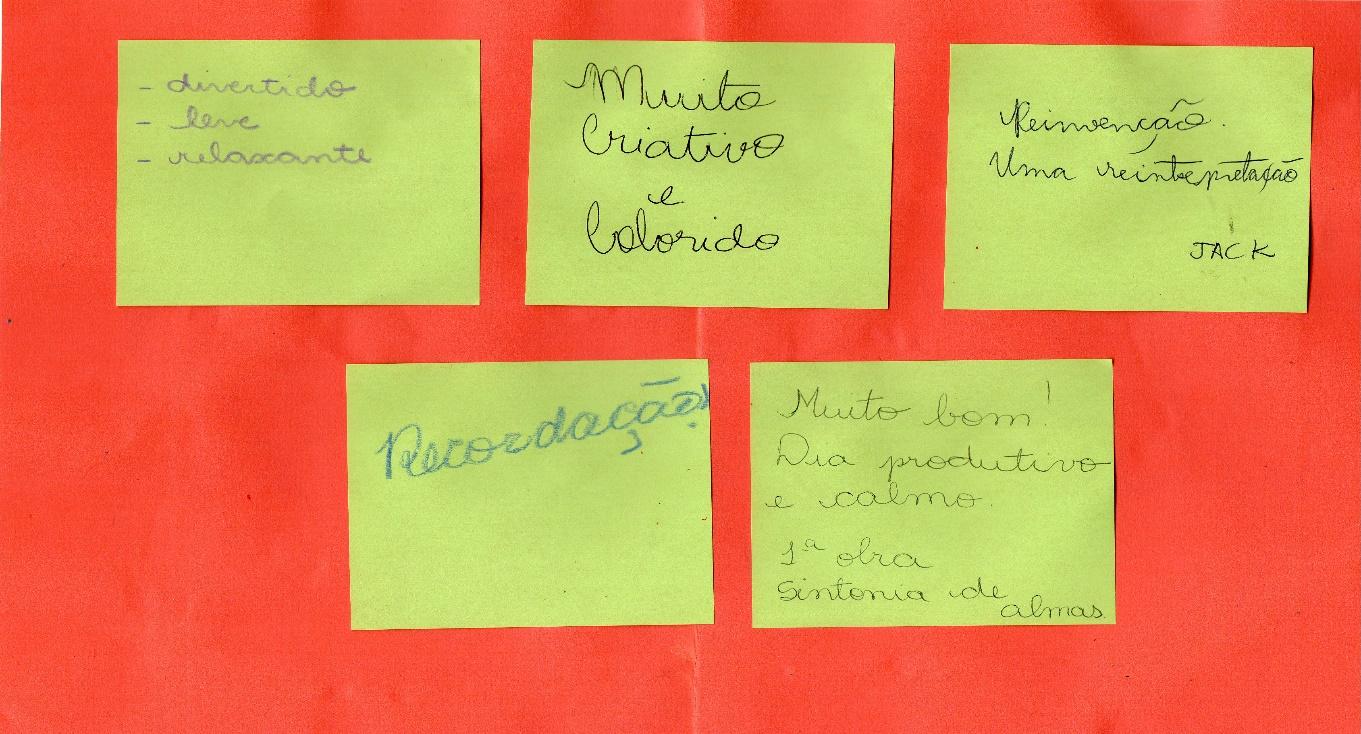 - divertido
- leve
- relaxante
Muito
Criativo
e
Colorido
Reinvenção.
Uma reintepretação
JACK
Recordação!
Muito bom!
Dia produtivo
e calmo.
1ª obra
Sintonia de
almas.